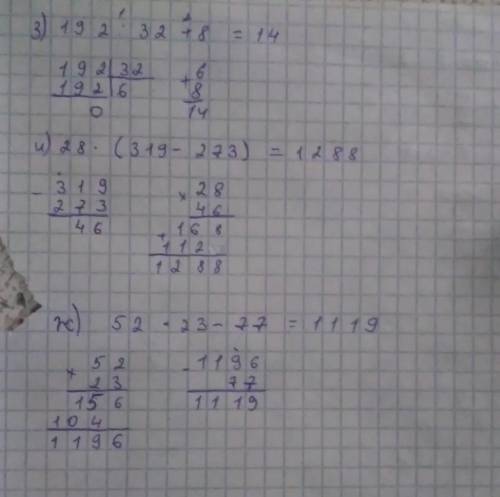 1 2
з) 192 : 32 + 8 = 14
192 | 32
192 | 6
0
+ 6
8
14
и) 28 · (319 - 273) = 1288
- 319
273
46
× 28
46
+ 168
112
1288
ж) 52 · 23 - 77 = 1119
× 52
23
156
104
1196
- 1196
77
1119